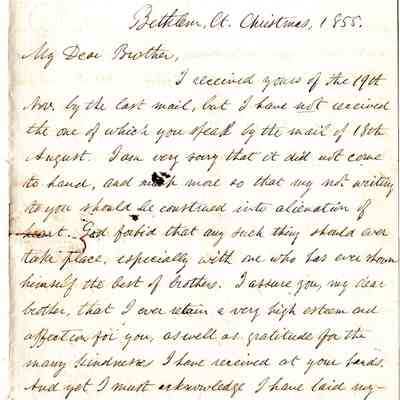 Bethlem, Ct. Christmas, 1855.
My Dear Brother,
I received yours of the 19th
Nov. by the last mail, but I have not received
the one of which you speak by the mail of 18th
August. I am very sorry that it did not come
to hand, and much more so that my not writing
to you should be construed into alienation of
heart. God forbid that any such thing should ever
take place, especially with one who has ever shown
himself the best of brothers. I assure you, my dear
brother, that I ever retain a very high esteem and
affection for you, as well as gratitude for the
many kindnesses I have received at your hands.
And yet I must acknowledge I have laid my-